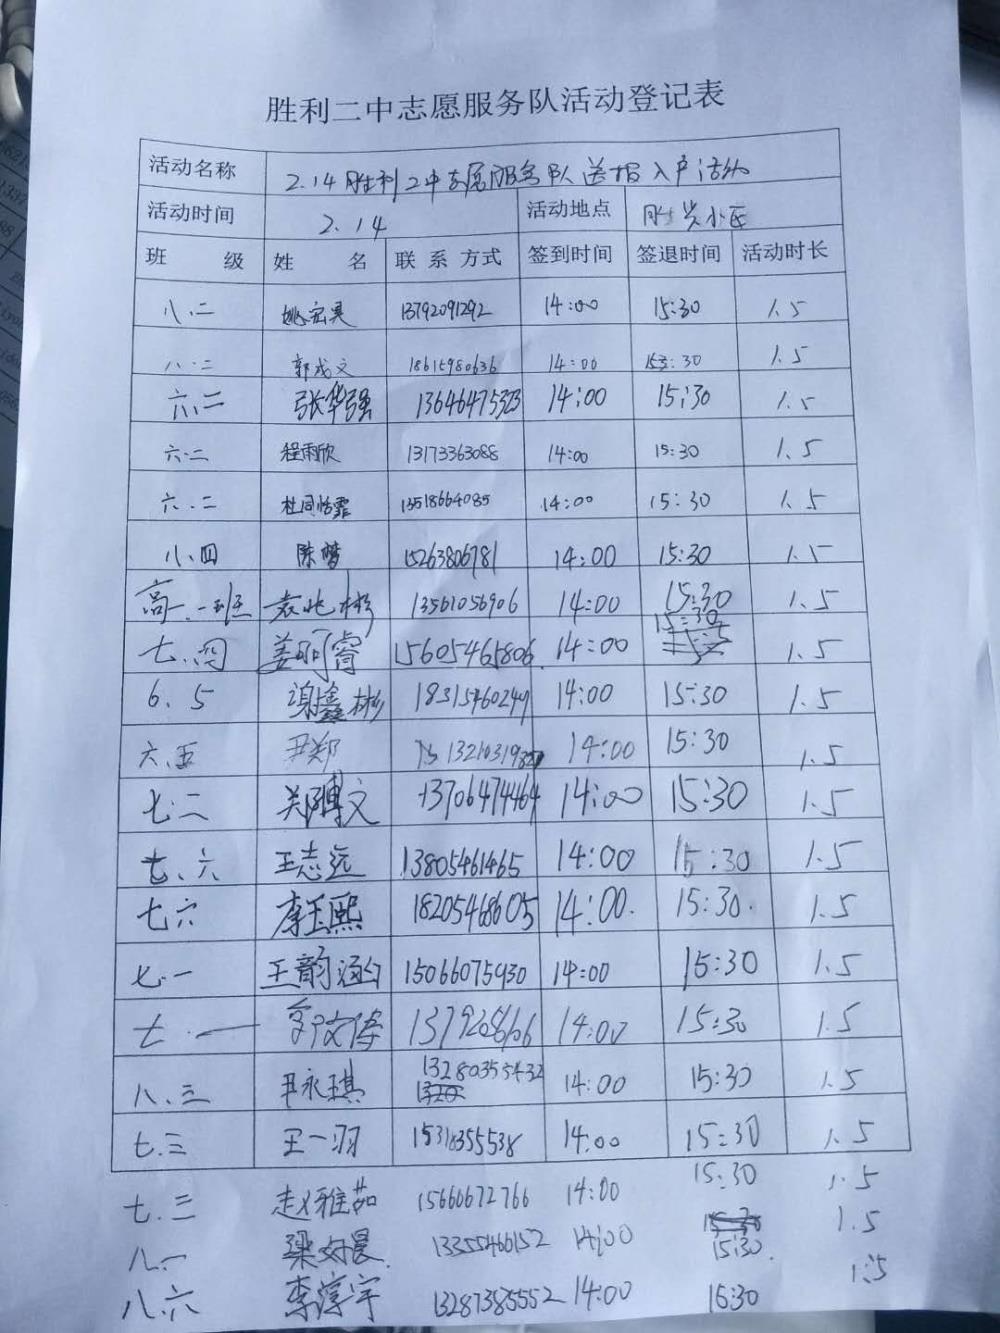 胜利二中志愿服务队活动登记表
活动名称 2.14胜利二中志愿服务队送报入户活动
活动时间 2.14 活动地点 胜兴小区
班 级 姓 名 联 系 方式 签到时间 签退时间 活动时长
八.二 姚宏昊 13792091292 14:00 15:30 1.5
八.二 郭成文 18615980636 14:00 15:30 1.5
六.二 张华强 13646475323 14:00 15:30 1.5
六.二 程雨欣 13173363088 14:00 15:30 1.5
六.二 杜同恬霏 13518664085 14:00 15:30 1.5
八.四 陈 15263806781 14:00 15:30 1.5
高一.一班 袁兆彬 13561056906 14:00 15:30 1.5
七.四 姜明睿 15605465806 14:00 15:30 1.5
6.5 谢鑫彬 14:00 15:30 1.5
六.五 尹郑 14:00 15:30 1.5
七.二 郑博文 13706474464 14:00 15:30 1.5
七.六 王志远 13805461465 14:00 15:30 1.5
七六 李玉熙 18205468605 14:00. 15:30. 1.5
七.一 王韵涵 15066075930 14:00 15:30 1.5
七.一 14:00 15:30 1.5
八.三 尹永琪 13280355432 14:00 15:30 1.5
七.三 王一羽 15318355538 14:00 15:30 1.5
七.三 赵雅茹 15660672766 14:00 15:30 1.5
八.一 梁好晨 13355466152 14:00 15:30. 1.5
八.六 李淳宇 13287385552 14:00 15:30 1.5